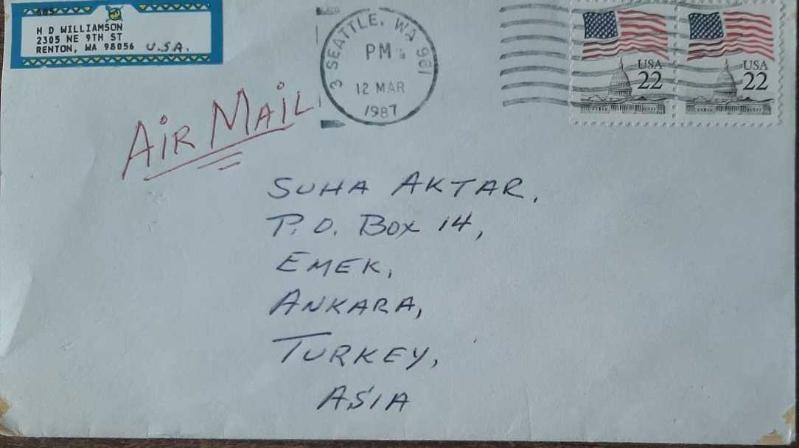 H D WILLIAMSON
2305 NE 9TH ST
RENTON, WA 98056 U.S.A.
SEATTLE, WA 981
3
PM
12 MAR
1987
USA
22
USA
22
AIR MAIL
SUHA AKTAR,
P.O. BOX 14,
EMEK,
ANKARA,
TURKEY,
ASIA